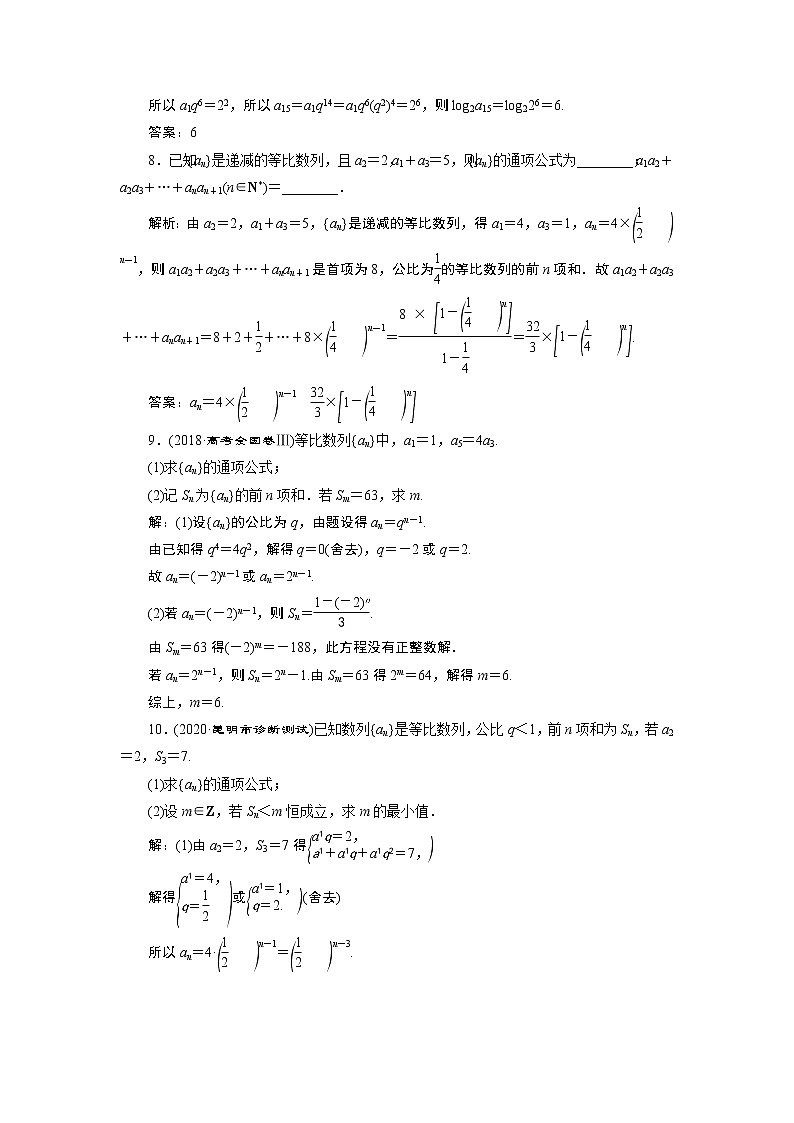 所以 a₁q⁶＝2²，所以 a₁₅＝a₁q¹⁴＝a₁q⁶(q²)⁴＝2⁶，则 log₂a₁₅＝log₂2⁶＝6.
答案：6
8．已知{aₙ}是递减的等比数列，且 a₂＝2，a₁＋a₃＝5，则{aₙ}的通项公式为________，a₁a₂＋
a₂a₃＋…＋aₙaₙ₊₁(n∈N*)＝________．
解析：由 a₂＝2，a₁＋a₃＝5，{aₙ}是递减的等比数列，得 a₁＝4，a₃＝1，aₙ＝4×(1/2)
ⁿ⁻¹，则 a₁a₂＋a₂a₃＋…＋aₙaₙ₊₁ 是首项为 8，公比为1/4的等比数列的前 n 项和．故 a₁a₂＋a₂a₃
＋…＋aₙaₙ₊₁＝8＋2＋1/2＋…＋8×(1/4)ⁿ⁻¹＝8×[1－(1/4)ⁿ]/(1－1/4)＝32/3×[1－(1/4)ⁿ].
答案：aₙ＝4×(1/2)ⁿ⁻¹ 32/3×[1－(1/4)ⁿ]
9．(2018·高考全国卷Ⅲ)等比数列{aₙ}中，a₁＝1，a₅＝4a₃.
(1)求{aₙ}的通项公式；
(2)记 Sₙ为{aₙ}的前 n 项和．若 Sₘ＝63，求 m.
解：(1)设{aₙ}的公比为 q，由题设得 aₙ＝qⁿ⁻¹.
由已知得 q⁴＝4q²，解得 q＝0(舍去)，q＝－2 或 q＝2.
故 aₙ＝(－2)ⁿ⁻¹ 或 aₙ＝2ⁿ⁻¹.
(2)若 aₙ＝(－2)ⁿ⁻¹，则 Sₙ＝(1－(－2)ⁿ)/3.
由 Sₘ＝63 得(－2)ᵐ＝－188，此方程没有正整数解．
若 aₙ＝2ⁿ⁻¹，则 Sₙ＝2ⁿ－1.由 Sₘ＝63 得 2ᵐ＝64，解得 m＝6.
综上，m＝6.
10．(2020·昆明市诊断测试)已知数列{aₙ}是等比数列，公比 q＜1，前 n 项和为 Sₙ，若 a₂
＝2，S₃＝7.
(1)求{aₙ}的通项公式；
(2)设 m∈Z，若 Sₙ＜m 恒成立，求 m 的最小值．
解：(1)由 a₂＝2，S₃＝7 得{a¹q＝2，a¹＋a¹q＋a¹q²＝7，)
解得{a¹＝4，q＝1/2)或{a¹＝1，q＝2.)(舍去)
所以 aₙ＝4·(1/2)ⁿ⁻¹＝(1/2)ⁿ⁻³.